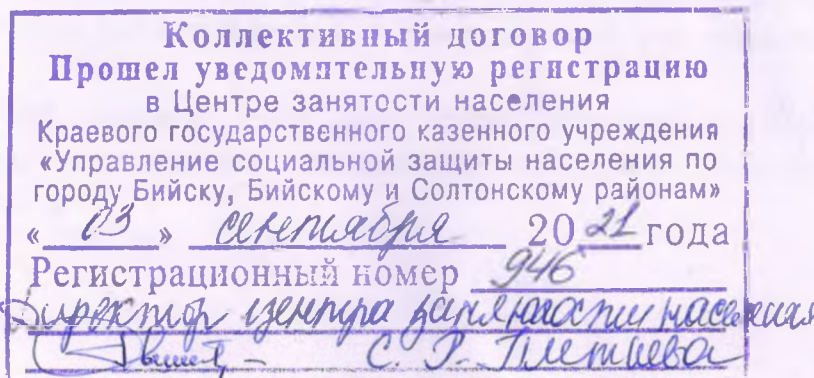 Коллективный договор
Прошел уведомительную регистрацию
в Центре занятости населения
Краевого государственного казенного учреждения
«Управление социальной защиты населения по
городу Бийску, Бийскому и Солтонскому районам»
« 03 » сентября 2021 года
Регистрационный номер 946
Директор центра занятости населения
С. Р.